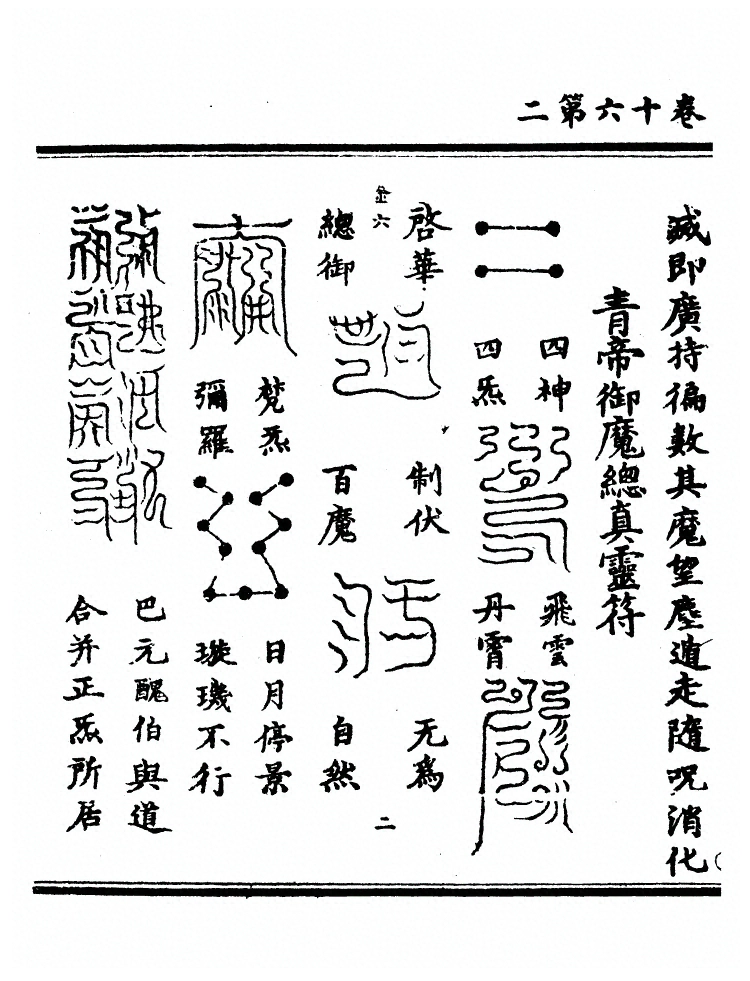 卷十六第二
滅即廣持徧數其魔望塵遁走隨呪消化
青帝御魔總真靈符
四神
四炁
飛雲
丹霄
啓華
總御
制伏
百魔
无為
自然
金六
二
梵炁
彌羅
日月停景
璇璣不行
巴元醜伯與道
合并正炁所居